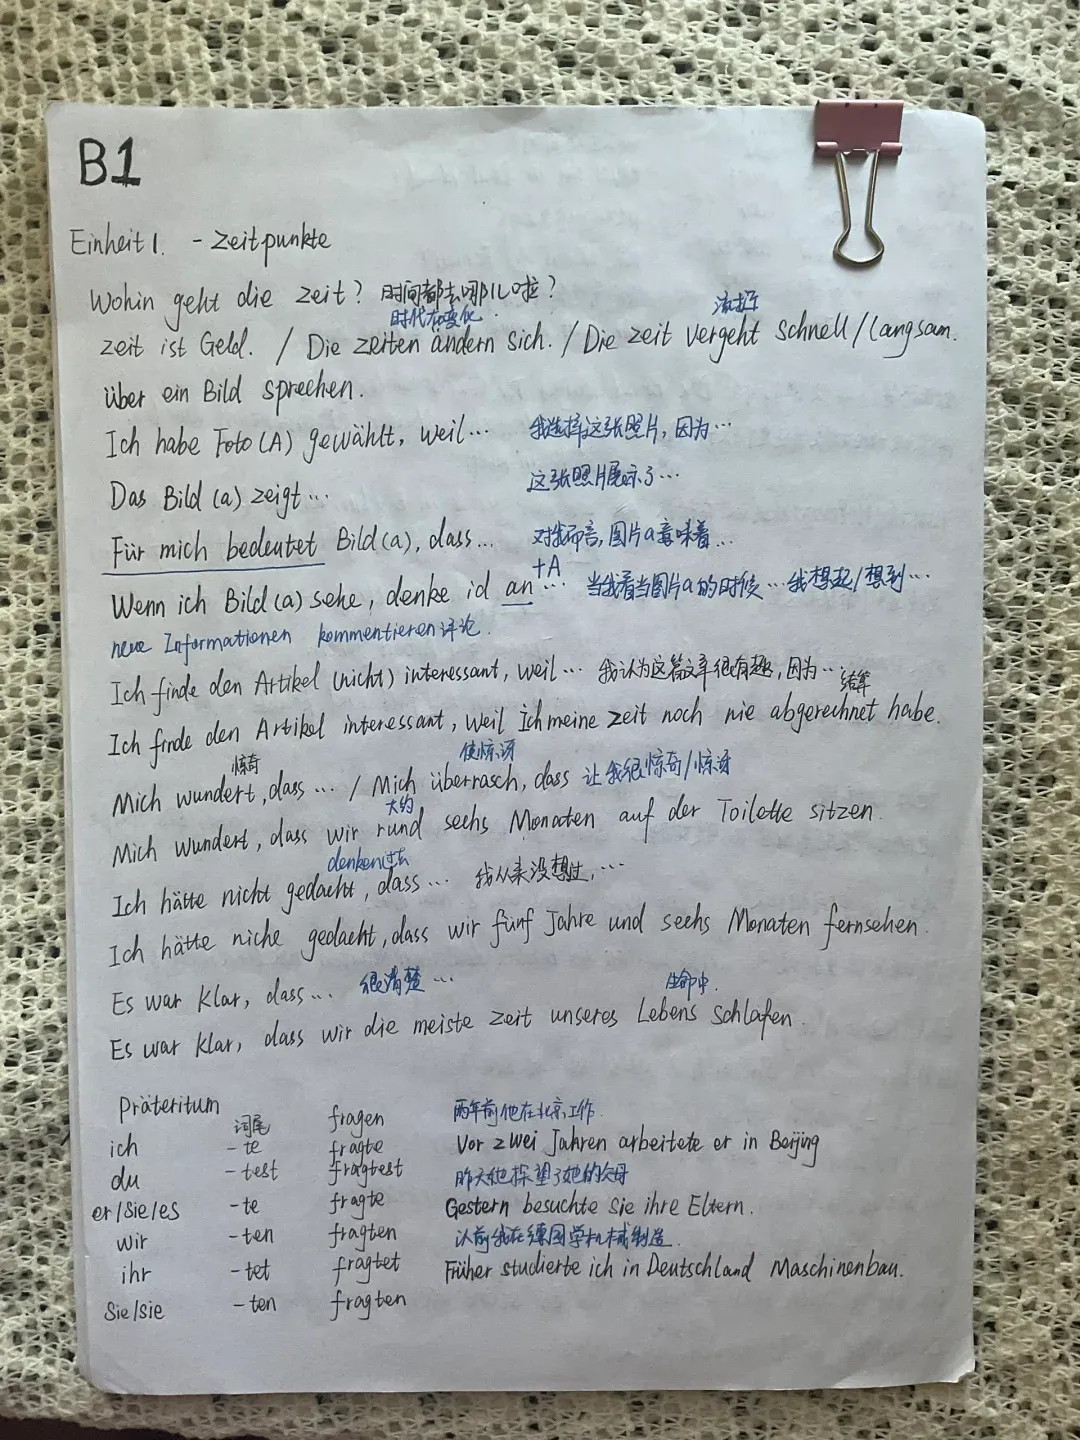 B1
Einheit 1. - Zeitpunkte
Wohin geht die Zeit? 时间都去哪儿啦?
时代在变化. 流逝
Zeit ist Geld. / Die Zeiten ändern sich. / Die Zeit vergeht schnell/langsam.
über ein Bild sprechen.
Ich habe Foto (A) gewählt, weil... 我选择这张照片,因为...
Das Bild (a) zeigt... 这张照片展示了...
Für mich bedeutet Bild (a), dass... 对我而言,图片a意味着...
+A
Wenn ich Bild (a) sehe, denke id an ... 当我看当图片a的时候...我想起/想到...
neue Informationen kommentieren 评论.
Ich finde den Artikel (nicht) interessant, weil... 我认为这篇文章很有趣,因为...
结算
Ich finde den Artikel interessant, weil ich meine Zeit noch nie abgerechnet habe.
惊奇 使惊讶
Mich wundert, dass... / Mich überrasch, dass 让我很惊奇/惊讶
大约
Mich wundert, dass wir rund sechs Monaten auf der Toilette sitzen.
denken过去
Ich hätte nicht gedacht, dass... 我从来没想过,...
Ich hätte niche gedacht, dass wir fünf Jahre und sechs Monaten fernsehen.
Es war klar, dass... 很清楚...
生命中.
Es war klar, dass wir die meiste Zeit unseres Lebens schlafen.
Präteritum
词尾 fragen 两年前他在北京工作.
ich -te fragte Vor zwei Jahren arbeitete er in Beijing
du -test fragtest 昨天她探望了她的父母
er/sie/es -te fragte Gestern besuchte sie ihre Eltern.
wir -ten fragten 以前我在德国学机械制造.
ihr -tet fragtet Früher studierte ich in Deutschland Maschinenbau.
Sie/sie -ten fragten